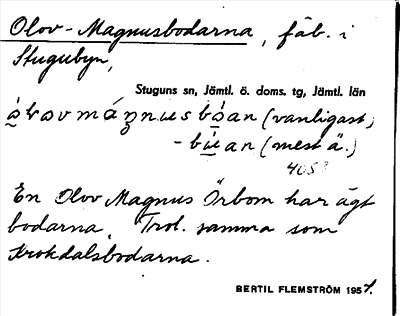 Olov-Magnusbodarna, fäb. i
Stugubyn,
Stuguns sn, Jämtl. ö. doms. tg, Jämtl. län
(vanligast)
- bu̱an (mest ä.)
405
En Olov Magnus Örbom har ägt
bodarna. Trol. samma som
Krokdalsbodarna.
BERTIL FLEMSTRÖM 1957.